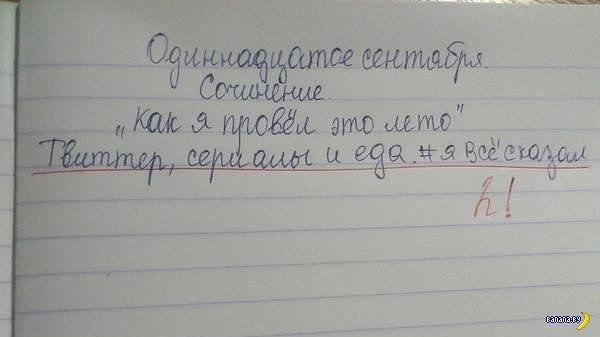 Одиннадцатое сентября.
Сочинение.
„Как я провёл это лето"
Твиттер, сериалы и еда. #я всё сказал
2!
BANANA.BY